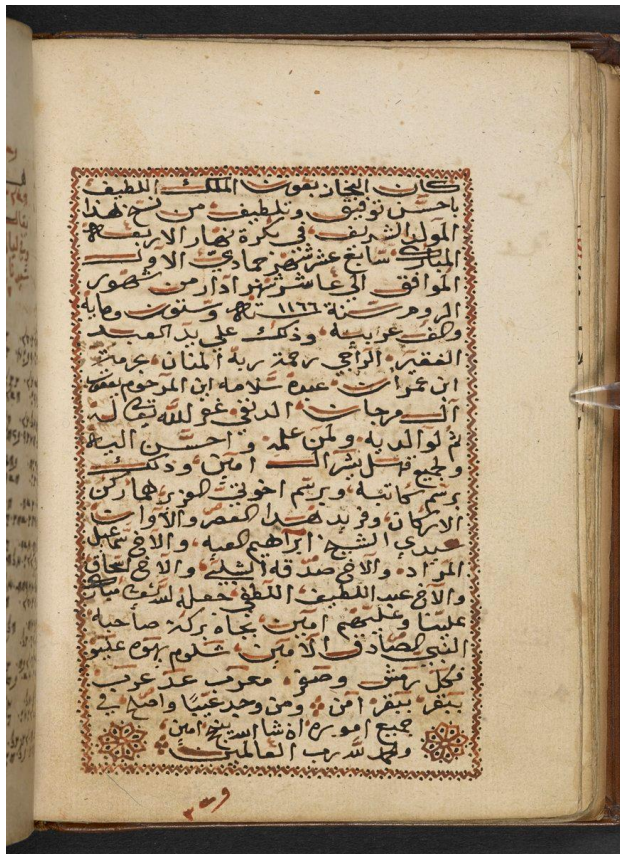 كان النجاز بعون الملك اللطيف
باحسن توفيق وتلطيف من نسخ هذا
المولد الشريف في بكرة نهار الاربعه
المبارك سابع عشر شهر جمادي الاول
الموافق الي عاشر شهر ادار من شهور
الروم سنة ١١٦٦ وستون ومايه
والف عربيه وذلك علي يد العبد
الفقير الراجي رحمة ربه المنان
ابن عمران عبده سلامه ابن المرحوم يعقوب
ال مرجان الدنفي غفر الله له
ثم لوالديه ولمن علمه واحسن اليه
ولجميع اسرال امين وذلك
برسم كاتبه وبرسم اخوتي العزيز هما ركن
الاركان وفريد هذا العصر والاوان
سيدي الشيخ ابراهيم العيه والاخ سماعيل
والاخ صدقه الشلبي والاخ اسحاق
والاخ عبد اللطيف اللطفي جعله مبارك
علينا وعليهم امين بجاه بركة صاحبه
النبي الصادق الامين شلوم يهوه عليو
فكل رمش وصفر معرب عد عرب
بيقر بيقر امن ومن وجد عيبا واصلح في
جميع اموره ان شا ينجح امين
والحمد لله رب العالمين